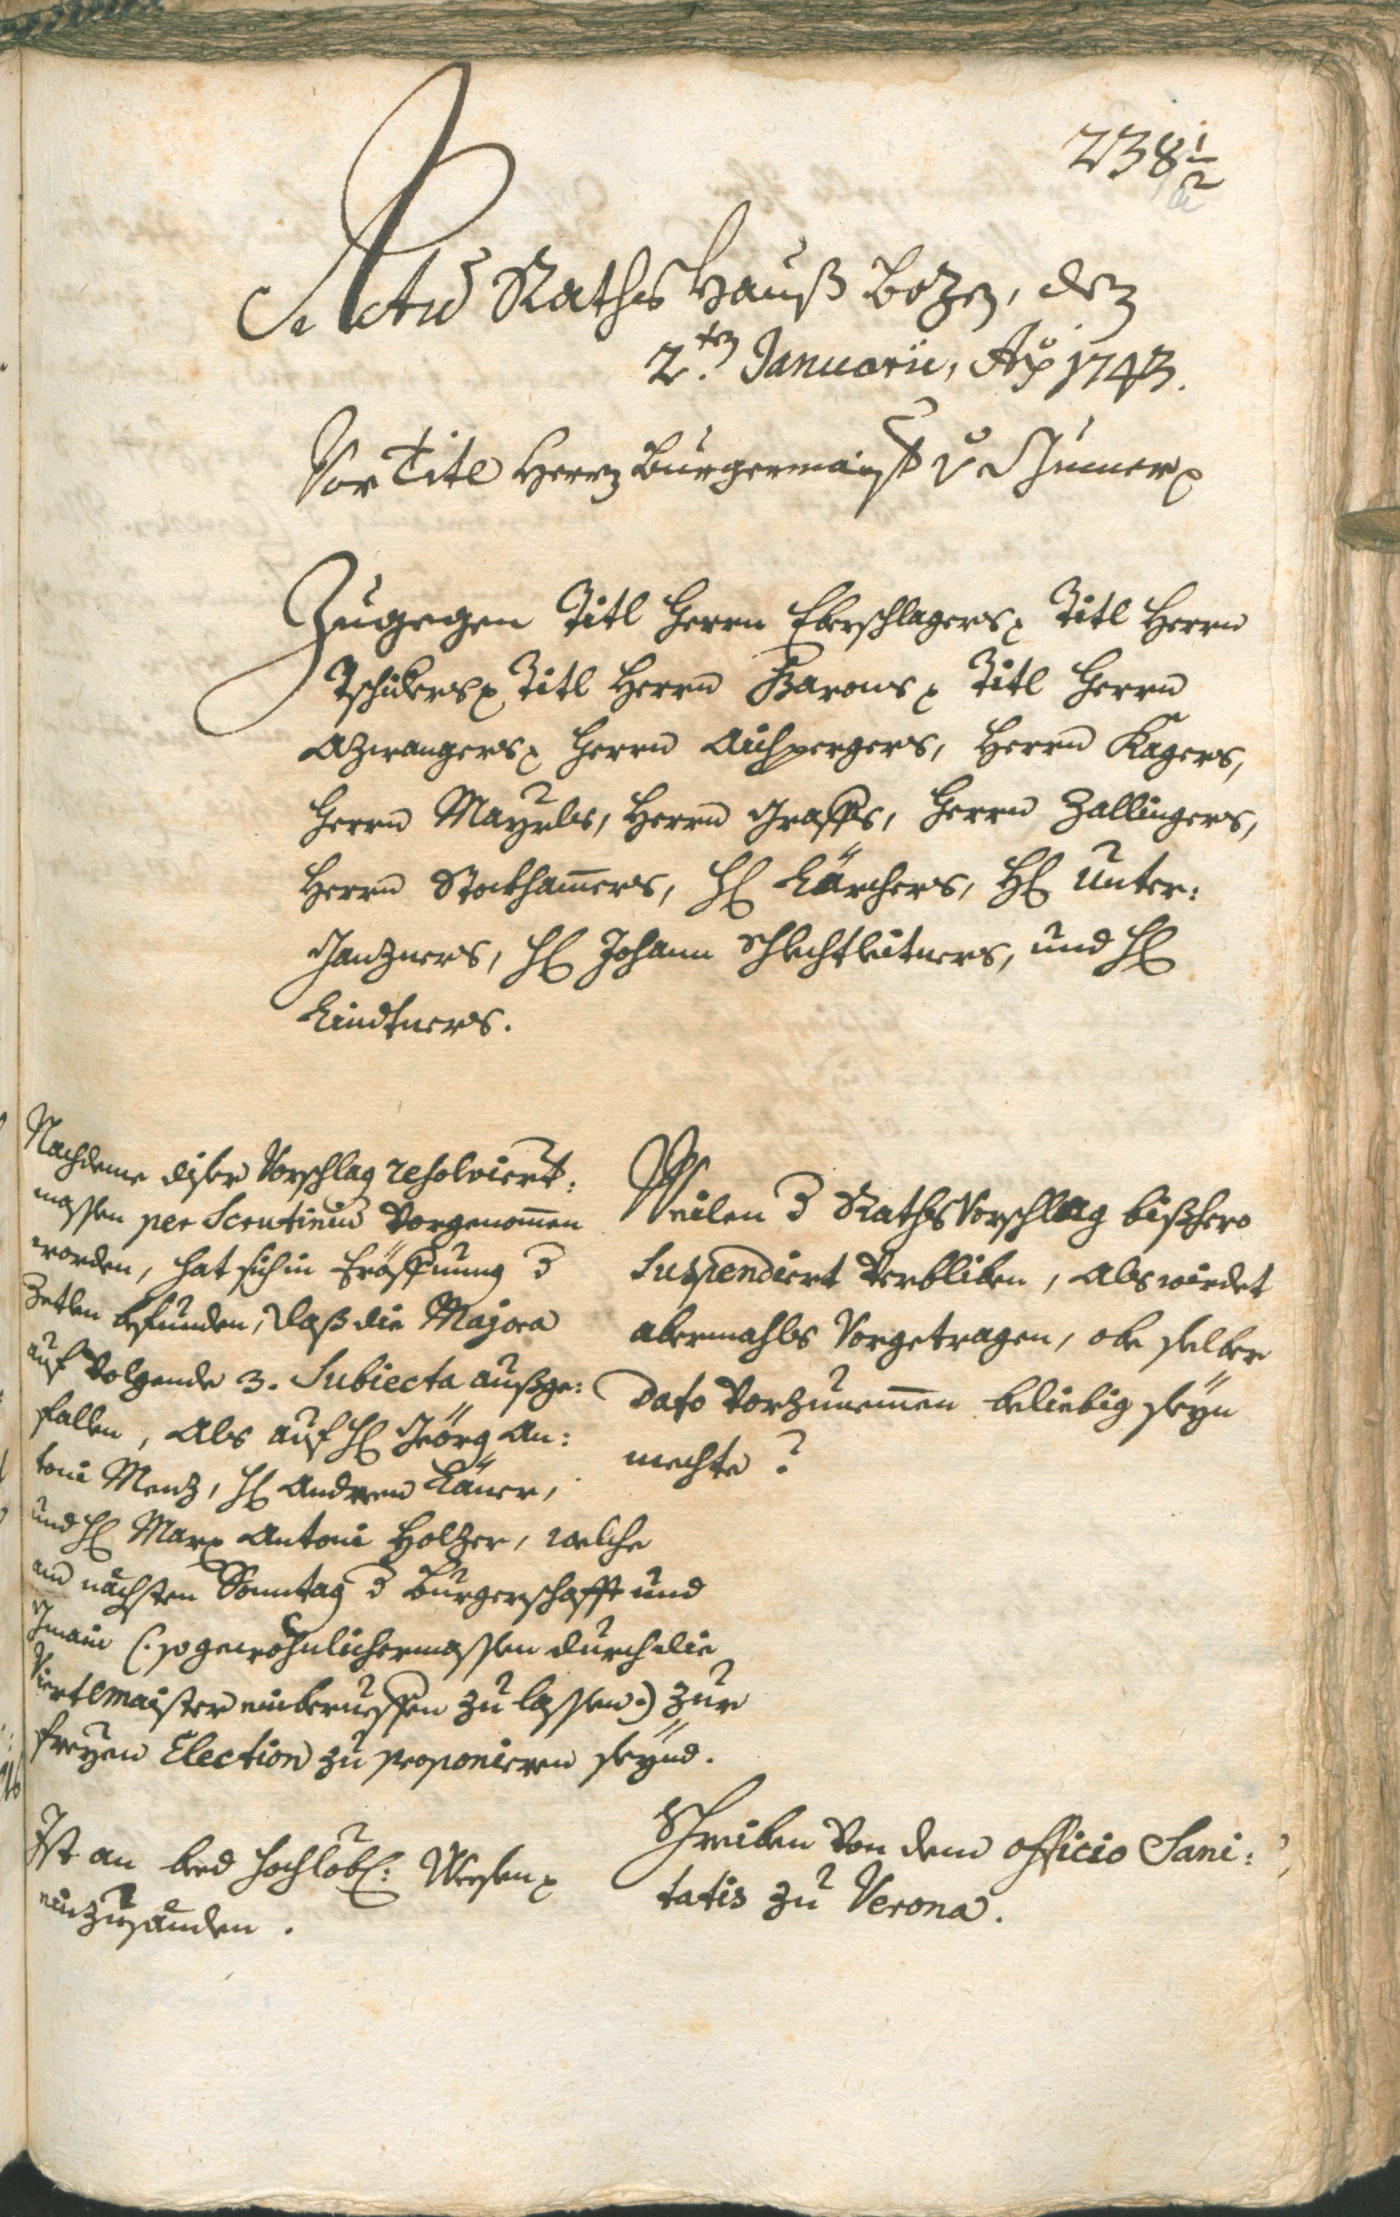 238 1/2
Actũ Raths Hauß Bozen, den
2.ten Januarii, Aõ 1743.
Vor Titl Herrn Burgermaister v
Zugegen Titl Herrn Eberschlagers, Titl Herrn
Tschiders, Titl Herrn Barons, Titl Herrn
Azwangers, Herrn Aichpergers, Herrn Kagers,
Herrn Mayrls, Herrn Graffs, Herrn Zallingers,
Herrn Stockham̃ers, H: Kärchers, H: Unter:
Ganzners, H: Johann Schlechtleitners, und H:
Lindtners.
Weilen d Raths Vorschlag bißhero
Suspendiert verbliben, als wirdet
abermahls Vorgetragen, ob selber
dato vorzunem̃en beliebig seyn
mechte?
Nachdeme diser Vorschlag resolviert:
massen per Scrutiniũ vorgenom̃en
worden, hat sich in Eröffnung d
Zetlen befunden, daß die Majora
auf volgende 3. Subiecta außge:
fallen, als auf H: Geörg An:
toni Menz, H: Andreen
und H: Marx Antoni Holzer, welche
am nächsten Sonntag d Burgerschafft und
Gmain (: so gewöhnlichermassen durch die
Viertlmaister einberueffen zu lassen :) zur
freyen Election zu proponieren seynd.
Schreiben von dem officio Sani:
tatis zu Verona.
Ist an hochlobl: Weesen
einzusänden.